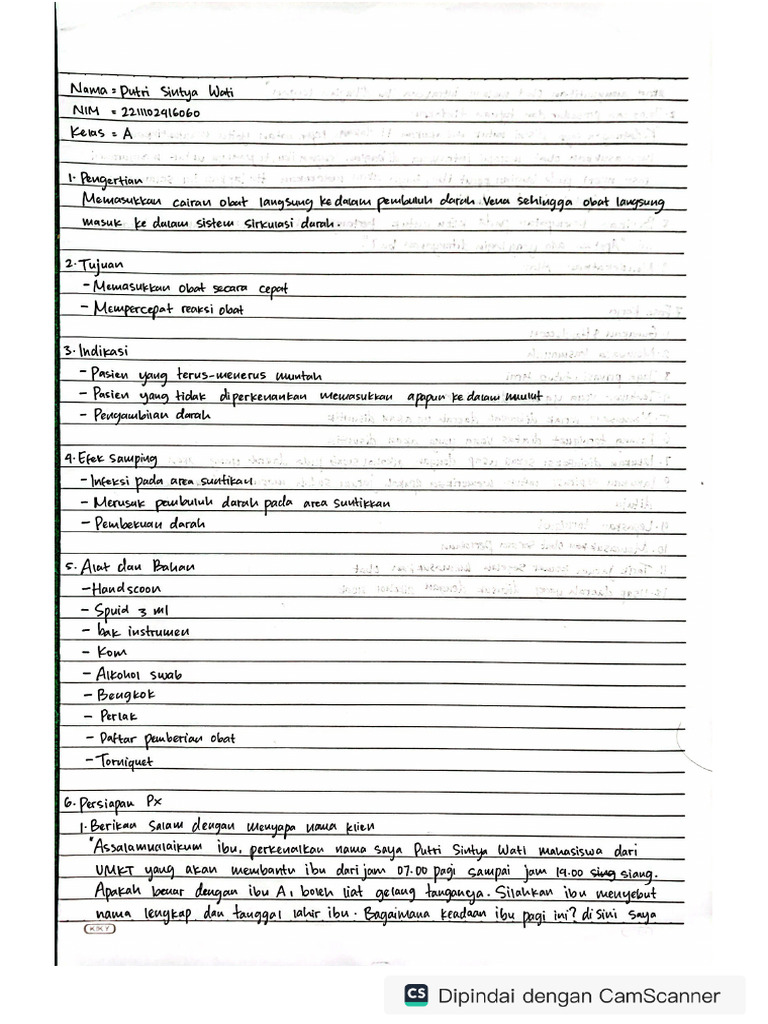 Nama = Putri Sintya Wati
NIM = 2211102416060
Kelas = A
1. Pengertian
Memasukkan cairan obat langsung ke dalam pembuluh darah vena sehingga obat langsung
masuk ke dalam sistem sirkulasi darah.
2. Tujuan
- Memasukkan obat secara cepat
- Mempercepat reaksi obat
3. Indikasi
- Pasien yang terus-menerus muntah
- Pasien yang tidak diperkenankan memasukkan apapun ke dalam mulut
- Pengambilan darah
4. Efek Samping
- Infeksi pada area suntikan
- Merusak pembuluh darah pada area suntikkan
- Pembekuan darah
5. Alat dan Bahan
- Handscoon
- Spuid 3 ml
- bak instrumen
- Kom
- Alkohol swab
- Bengkok
- Perlak
- Daftar pemberian obat
- Torniquet
6. Persiapan Px
1. Berikan Salam dengan menyapa nama klien
"Assalamualaikum ibu, perkenalkan nama saya Putri Sintya Wati mahasiswa dari
UMKT yang akan membantu ibu dari jam 07.00 pagi sampai jam 14.00 sing siang.
Apakah benar dengan ibu A, boleh liat gelang tangannya. Silahkan ibu menyebut
nama lengkap dan tanggal lahir ibu. Bagaimana keadaan ibu pagi ini? disini saya
KIKY
CS Dipindai dengan CamScanner